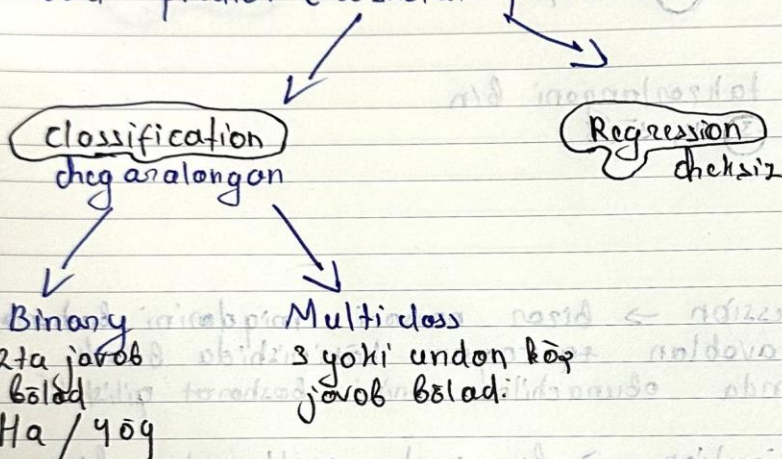 Classification
chegaralangan
Regression
cheksiz
Binary
2ta javob
bõlad
Ha / yõq
Multiclass
3 yoki undan kõp
javob bõladi.